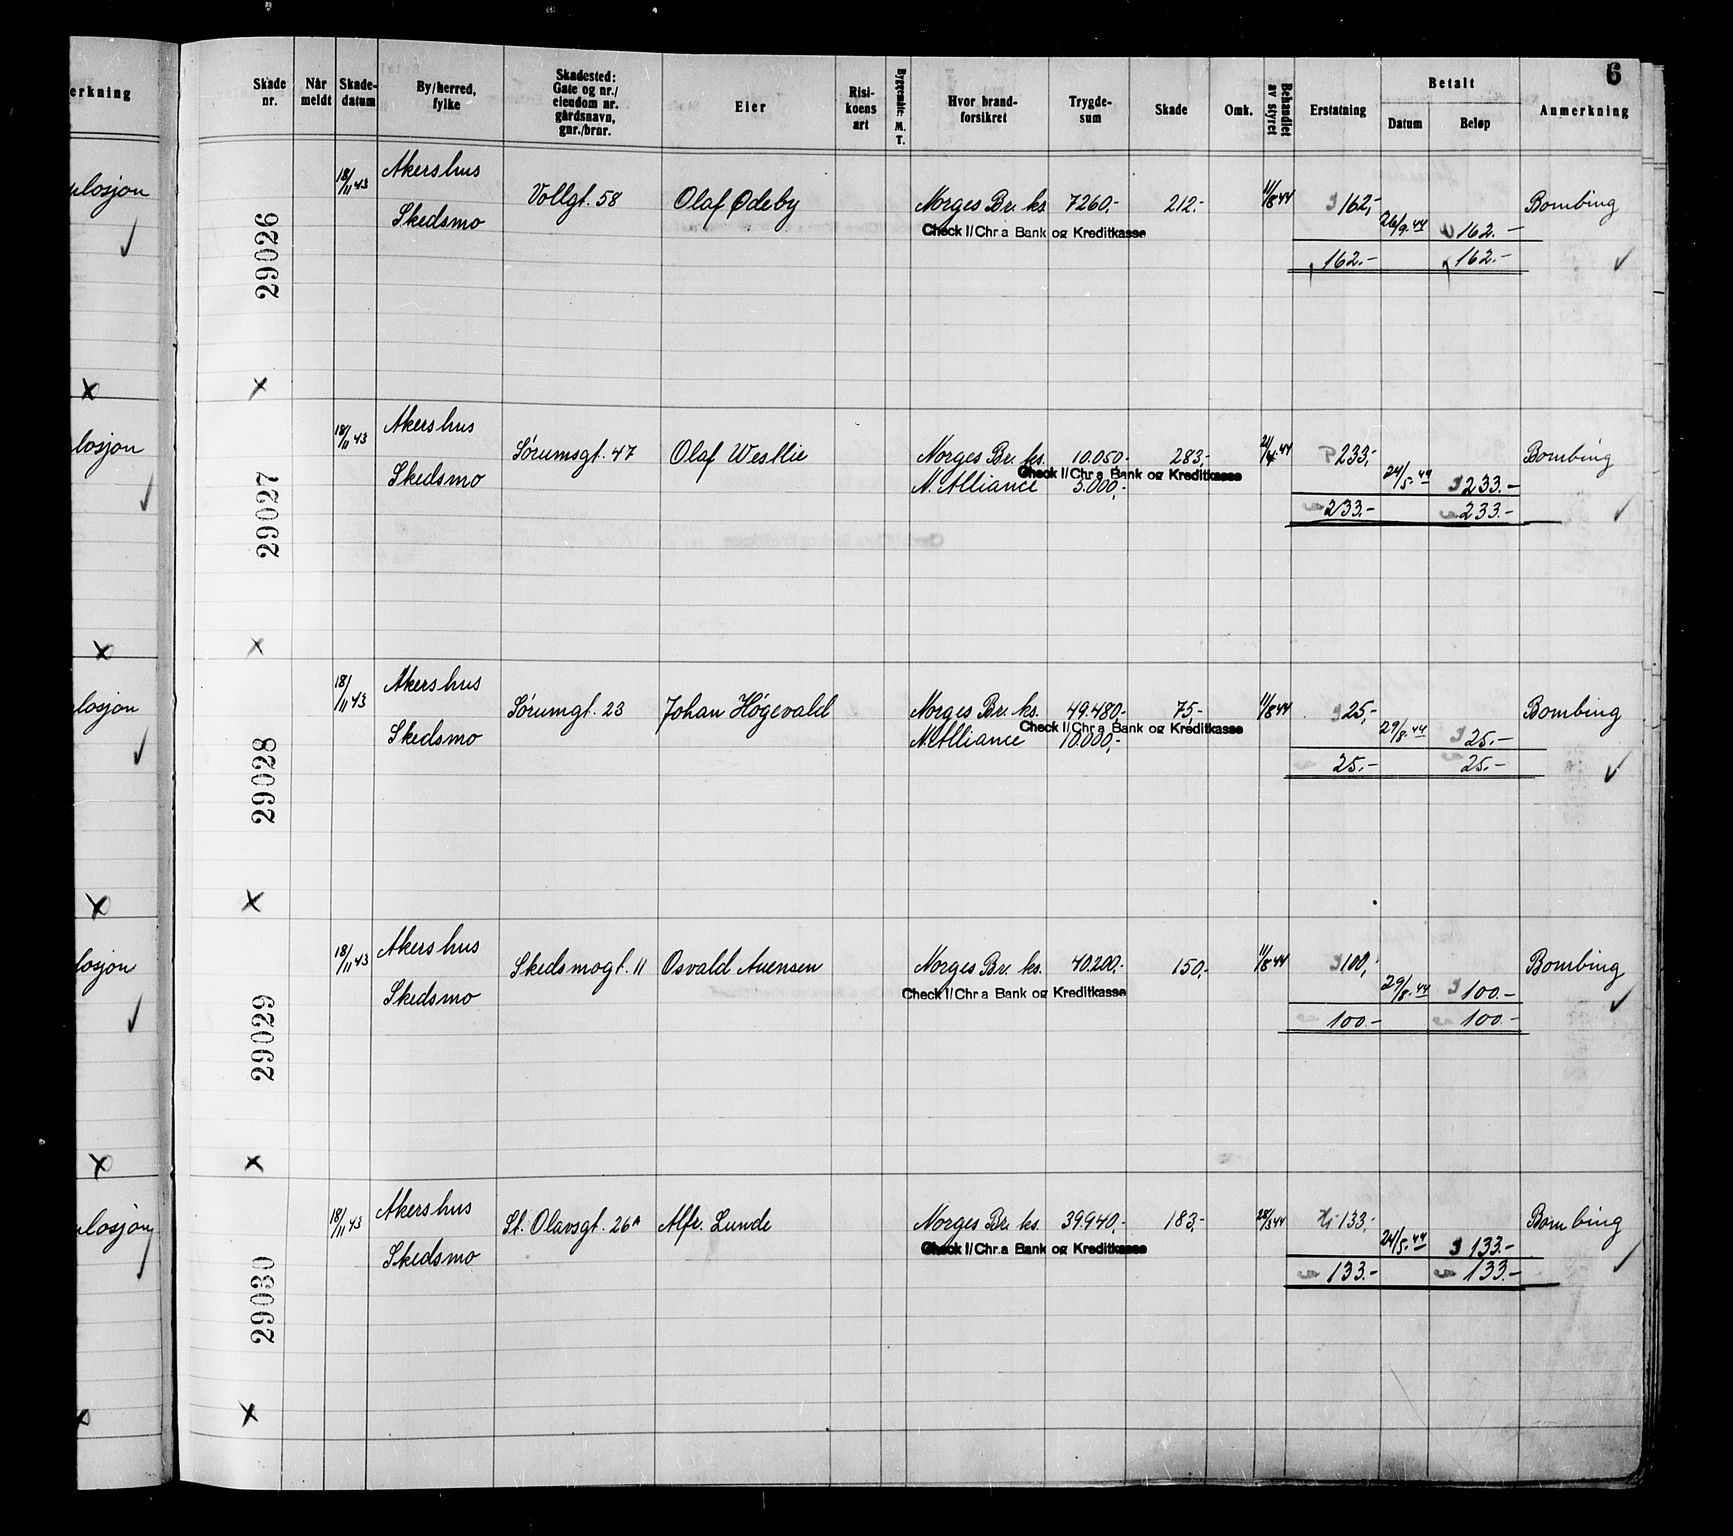 erkning
Skade nr.
Når meldt
Skade-datum
By/herred, fylke
Skadested: Gate og nr./ eiendom nr. gårdsnavn, gnr./brnr.
Eier
Risi-koens art
Byggemåte M. T.
Hvor brand-forsikret
Trygde-sum
Skade
Omk.
Behandlet av styret
Erstatning
Betalt
Datum
Beløp
Anmerkning
6
losjon
29026
18/11 43
Akershus
Skedsmo
Vollgt. 58
Olaf Ødeby
Norges Br. ks.
7260,-
212,-
11/8 44
162,-
26/9.44
162.-
Bombing
Check I/Chr.a Bank og Kreditkasse
162.-
162.-
x
x
losjon
29027
18/11 43
Akershus
Skedsmo
Sørumsgt. 47
Olaf Westlie
Norges Br. ks.
10.050.-
283,-
44
233,-
24/5.44
233.-
Bombing
Check I/Chr.a Bank og Kreditkasse
N. Alliance
5.000,-
233.-
233.-
x
x
losjon
29028
18/11 43
Akershus
Skedsmo
Sørumgt. 23
Johan Høgevald
Norges Br. ks.
49.480,-
75,-
11/8 44
25,-
29/8.44
25.-
Bombing
Check I/Chr.a Bank og Kreditkasse
N. Alliance
10.000,-
25.-
25.-
x
x
losjon
29029
18/11 43
Akershus
Skedsmo
Skedsmogt. 11
Osvald Auensen
Norges Br. ks.
40.200,-
150,-
11/8 44
100,-
29/8.44
100.-
Bombing
Check I/Chr.a Bank og Kreditkasse
100.-
100.-
x
x
losjon
29030
18/11 43
Akershus
Skedsmo
St. Olavsgt. 26A
Alfr. Lunde
Norges Br. ks.
39.940,-
183,-
28/3 44
133,-
24/5.44
133.-
Bombing
Check I/Chr.a Bank og Kreditkasse
133.-
133.-
x
x